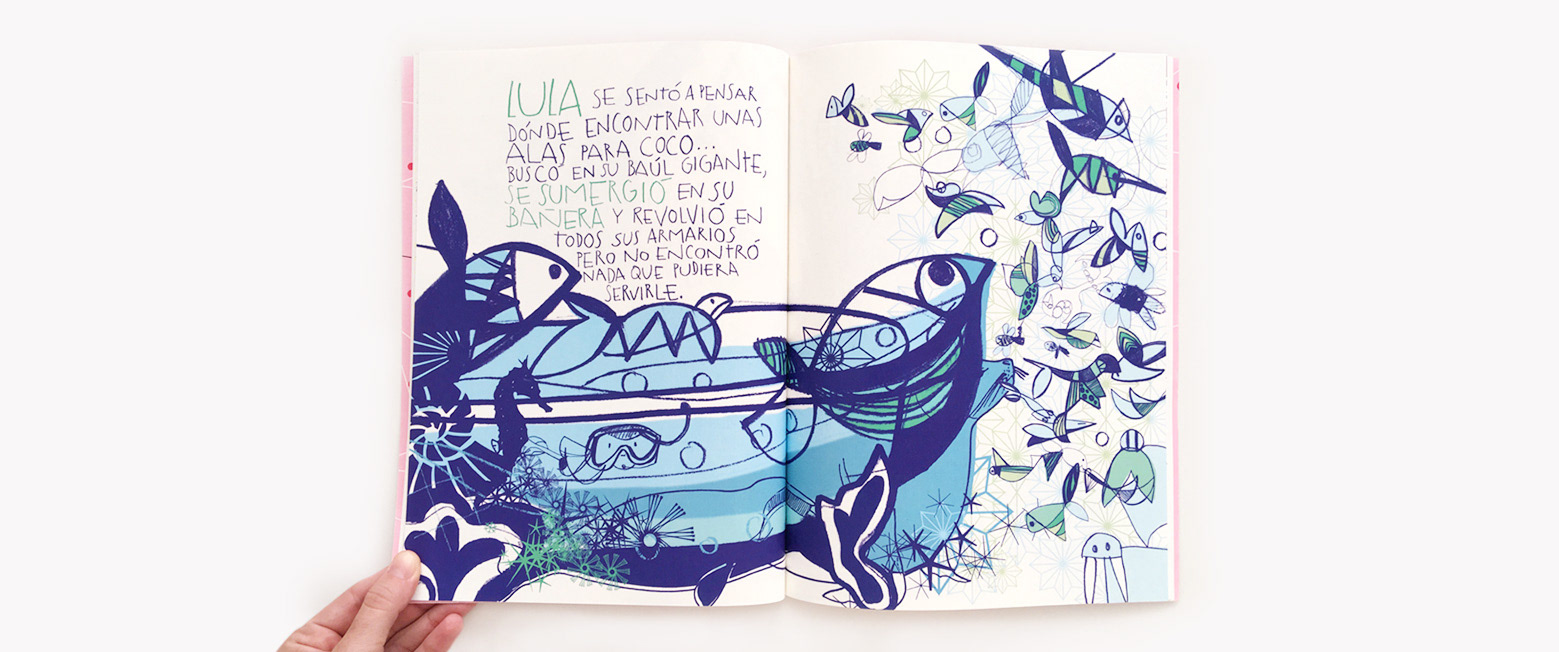 LULA SE SENTÓ A PENSAR
DÓNDE ENCONTRAR UNAS
ALAS PARA COCO...
BUSCÓ EN SU BAÚL GIGANTE,
SE SUMERGIÓ EN SU
BAÑERA Y REVOLVIÓ EN
TODOS SUS ARMARIOS
PERO NO ENCONTRÓ
NADA QUE PUDIERA
SERVIRLE.